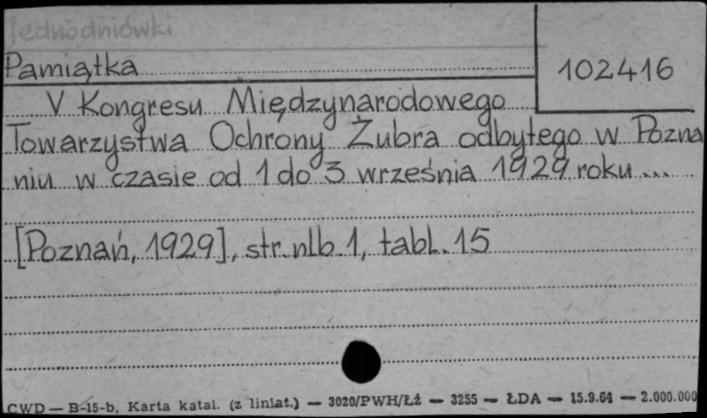 Jednodniówki
Pamiątka
102416
V Kongresu Międzynarodowego
Towarzystwa Ochrony Żubra odbytego w Pozna
niu w czasie od 1 do 3 września 1929 roku...
[Poznań, 1929], str. nlb. 1, tabl. 15
CWD — B-15-b, Karta katal. (z liniat.) — 3020/PWH/Łż — 3255 — ŁDA — 15.9.64 — 2.000.000